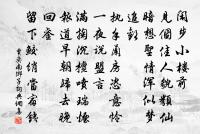 閒步小樓前
見個佳人貌類仙
暗想聖情渾似夢
追歡
執手蘭房恣意憐
一夜說盟言
滿掬沉檀噴瑞煙
報道早朝歸去晚
回鑾
留下鮫綃當宿錢
南鄉子詞